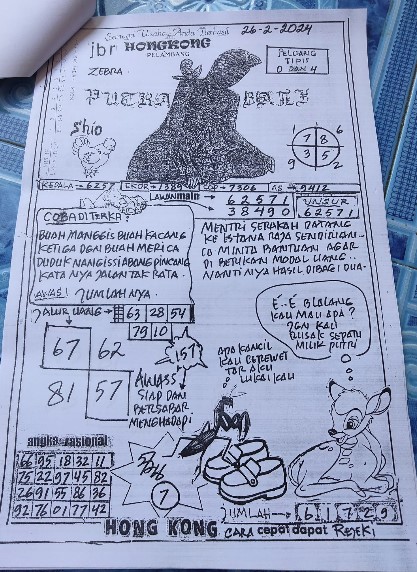 Semoga Usaha Anda Berhasil
26-2-2024
jbr HONGKONG
PALEMBANG
PELUANG
TIPIS
0 DAN 4
ZEBRA
PUTRA BALI
Shio
1 7 8 6
9 3 5 2
KEPALA = 6257 EKOR = 1389 COP = 7306 AS = 9412
LAWAN MAIN
6 2 5 7 1
3 8 4 9 0
UNSUR
6 2 5 7 1
COBA DI TERKA?
BUAH MANGGIS BUAH KACANG
KETIGA DGN BUAH MERICA
DUDUK NANGIS SI ABANG PINCANG
KATA NYA JALAN TAK RATA.
AWAS! JUMLAH NYA.
MENTRI SERAKAH DATANG
KE ISTANA RAJA SENDIRIAN
MINTA BANTUAN AGAR
DI BERIKAN MODAL UANG..
NANTI NYA HASIL DIBAGI DUA.
JALUR UANG
63 28 54
79 10
67 62
81 57
157
AWASS
SIAP DAN
BERSABAR
MENGHADAPI
APA KANCIL
KAU CEREWET
TAR AKU
LUKAI KAU
E..E BELALANG
KAU MAU APA?
JGN KAU
RUSAK SEPATU
MILIK PUTRI
angka rasional
66 95 18 32 11
75 22 97 45 82
26 91 55 86 36
92 76 01 77 42
7
JUMLAH
6 1 7 2 9
HONG KONG CARA cepat dapat REJEKI